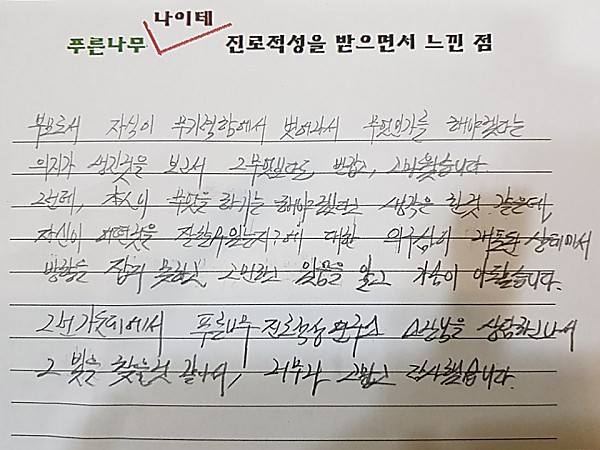 나이테
푸른나무 진로적성을 받으면서 느낀 점
부모로서 자식이 무기력함에서 벗어나서 무엇인가를 해야겠다는
의지가 생긴것을 보고서 그무엇보다도 반갑고, 고마웠습니다.
그런데, 本人이 무엇을 하기는 해야겠다고 생각은 한것 같은데,
자신이 어떤것을 잘할수있는지?에 대한 의구심이 상태에서
방향을 잡지 못하고, 고민하고 있음을 알고 가슴이 아팠습니다.
그런 가운데에서 푸른나무 진로적성 연구소 상담하고나서
그 빛을 찾을것 같아서, 너무나 고맙고 감사했습니다.